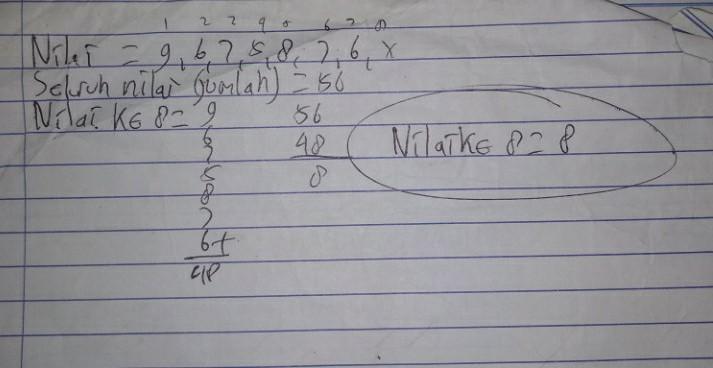 1 2 3 4 5 6 7 8
Nilai = 9, 6, 7, 5, 8, 7, 6, x
Seluruh nilai (jumlah) = 56
Nilai ke 8 = 9 56
6 48
7 8
5
8
7
6 +
48
Nilai ke 8 = 8